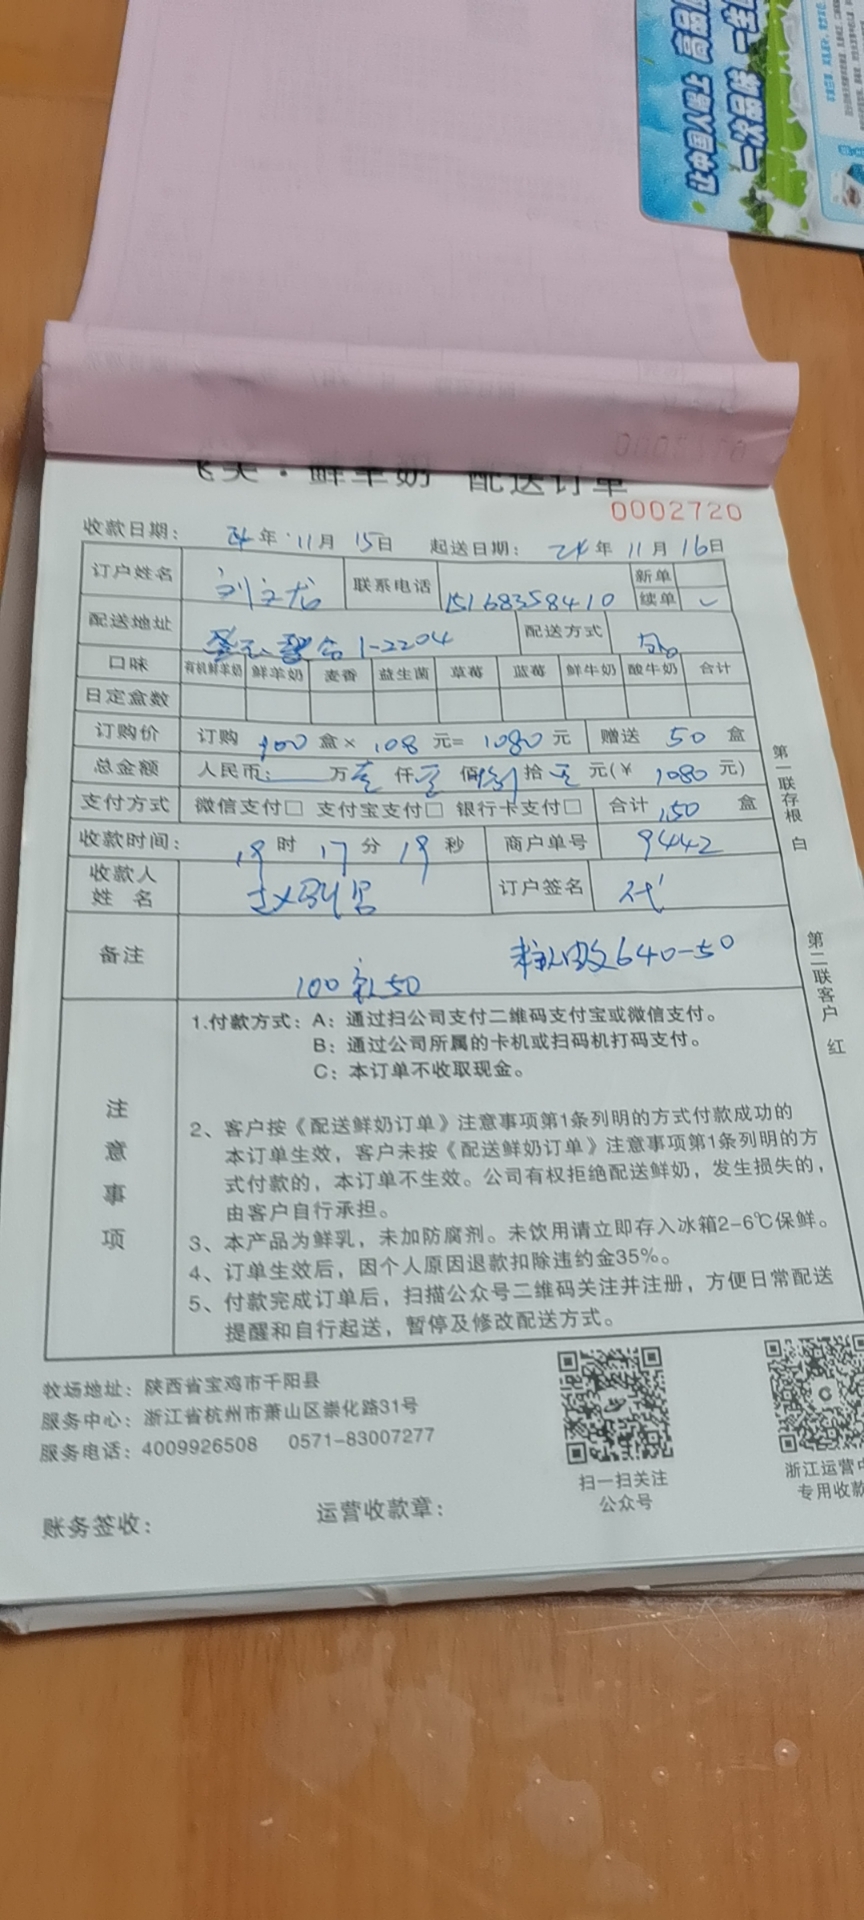 让中国人喝上 高品
一次品鲜 一生
飞天·鲜羊奶 配送订单
0002720
收款日期: 24年11月15日 起送日期: 24年11月16日
订户姓名 联系电话 15168358410 新单
续单 ✓
配送地址 1-2204 配送方式
口味 有机鲜羊奶 鲜羊奶 麦香 益生菌 草莓 蓝莓 鲜牛奶 酸牛奶 合计
日定盒数
订购价 订购 100 盒× 108 元= 1080 元 赠送 50 盒
总金额 人民币: 万 壹 仟 零 佰 捌 拾 零 元(¥ 1080 元)
支付方式 微信支付□ 支付宝支付□ 银行卡支付□ 合计 150 盒
收款时间: 19 时 17 分 19 秒 商户单号 9442
收款人
姓 名 订户签名 代
备注 640-50
100 送 50
注意事项
1.付款方式: A: 通过扫公司支付二维码支付宝或微信支付。
B: 通过公司所属的卡机或扫码机打码支付。
C: 本订单不收取现金。
2、客户按《配送鲜奶订单》注意事项第1条列明的方式付款成功的
本订单生效, 客户未按《配送鲜奶订单》注意事项第1条列明的方
式付款的, 本订单不生效。公司有权拒绝配送鲜奶, 发生损失的,
由客户自行承担。
3、本产品为鲜乳, 未加防腐剂。未饮用请立即存入冰箱2-6℃保鲜。
4、订单生效后, 因个人原因退款扣除违约金35%。
5、付款完成订单后, 扫描公众号二维码关注并注册, 方便日常配送
提醒和自行起送, 暂停及修改配送方式。
第一联存根 白
第二联客户 红
牧场地址: 陕西省宝鸡市千阳县
服务中心: 浙江省杭州市萧山区崇化路31号
服务电话: 4009926508 0571-83007277
扫一扫关注
公众号
浙江运营中
专用收款
账务签收: 运营收款章: